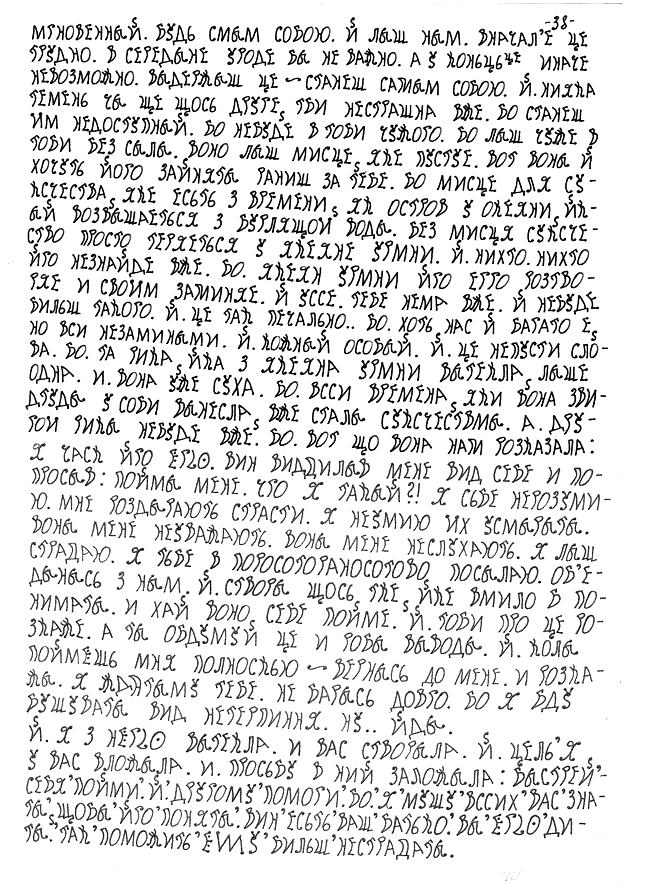 -38-
МГНОВЕННЫЙ. БУДЬ СМЫМ СОБОЮ. Й ЛЫШ НЫМ. ВНАЧАЛ'Е ЦЕ
ТРУДНО. В СЕРЕДЫНЕ УРОДЕ БЫ НЕ ВАЖНО. А У КОНЬЦЬЦЕ ИНАЧЕ
НЕВОЗМОЖНО. ВЫДЕРЖЫШ ЦЕ – СТАНЕШ САМЫМ СОБОЮ. Й. НИЯКА
ТЕМЕНЬ ЧЫ ЩЕ ЩОСЬ ДРУГЕ, ТБИ НЕСТРАШНА ВЖЕ. БО СТАНЕШ
ИМ НЕДОСТУПНЫЙ. БО НЕБУДЕ В ТОБИ ЧУЖОГО. БО ЛЫШ ЧУЖЕ В
ТОБИ БЕЗ СЫЛЫ. ВОНО ЛЫШ МИСЦЕ, ЯКЕ ПУСТУЕ. ВОТ ВОНЫ Й
ХОЧУТЬ ЙОГО ЗАЙНЯТЫ РАНИШ ЗА ТЕБЕ. БО МИСЦЕ ДЛЯ СУ-
КСЧЕСТВА, ЯКЕ ЕСЬТЬ З ВРЕМЕНИ, ЯК ОСТРОВ У ОКЕЯНИ, ЙК-
ЫЙ ВОЗВЫШАЕТЬСЯ З БУРЛЯЩОЙ ВОДЫ. БЕЗ МИСЦЯ СУКСЧЕ-
СТВО ПРОСТО ТЕРЯЕТЬСЯ У ЯКЕЯНЕ УРМНИ. Й. НИХТО. НИХТО
ЙГО НЕЗНАЙДЕ ВЖЕ. БО. ЯКЕЯН УРМНИ ЙГО ЕГГО РОЗТВО-
РЯЕ И СВОИМ ЗАМИНЯЕ. Й УССЕ. ТЕБЕ НЕМА ВЖЕ. Й НЕБУДЕ
БИЛЬШ ТАКОГО. Й. ЦЕ ТАК ПЕЧАЛЬНО.. БО. ХОТЬ НАС Й БАГАТО Е,
НО ВСИ НЕЗАМИНЫМИ. Й. КОЖНЫЙ ОСОБЫЙ. Й. ЦЕ НЕПУСТИ СЛО-
ВА. БО. ТА РИКА, ЙКА З ЯКЕЯНА УРМНИ ВЫТЕКЛА, ЛЫШЕ
ОДНА. И. ВОНА УЖЕ СУХА. БО. ВССИ ВРЕМЕНА, ЯКИ ВОНА ЗВИ-
ДТУДЫ У СОБИ ВЫНЕСЛА, ВЖЕ СТАЛЫ СУКСЧЕСТВМЫ. А. ДРУ-
ГОИ РИКЫ НЕБУДЕ ВЖЕ. БО. ВОТ ЩО ВОНА НАМ РОЗКАЗАЛА:
Я ЧАСК ЙГО ЕГГО. ВИН ВИДДИЛЫВ МЕНЕ ВИД СЕБЕ И ПО-
ПРОСЫВ: ПОЙМЫ МЕНЕ. ЧТО Я ТАКЫЙ?! Я СЬБЕ НЕРОЗУМИ-
Ю. МНЕ РОЗДЫРАЮТЬ СТРАСТИ. Я НЕУМИЮ ИХ УСМЫРЫТЫ.
ВОНЫ МЕНЕ НЕУВАЖАЮТЬ. ВОНЫ МЕНЕ НЕСЛУХАЮТЬ. Я ЛЫШ
СТРАДАЮ. Я ТЬБЕ В ПОРОСОТОРАНОСОТОВО ПОСЫЛАЮ. ОБ'Е-
ДЫНЫСЬ З НЫМ. Й. СТВОРЫ ЩОСЬ ТКЕ, ЙКЕ ВМИЛО Б ПО-
НИМАТЫ. И ХАЙ ВОНО СЕБЕ ПОЙМЕ. Й. ТОБИ ПРО ЦЕ РО-
ЗКАЖЕ. А ТЫ ОБДУМУЙ ЦЕ И РОБЫ ВЫВОДЫ. Й. КОЛЫ
ПОЙМЕШЬ МНЯ ПОЛНОСТЬЮ – ВЕРНЫСЬ ДО МЕНЕ. И РОЗКА-
ЖЫ. Я ЖДЯТЫМУ ТЕБЕ. НЕ БАРЫСЬ ДОВГО. БО Я БДУ
БУШУВАТЫ ВИД НЕТЕРПИННЯ. НУ.. ЙДЫ.
Й. Я З НЕГГО ВЫТЕКЛА. И ВАС СТВОРЫЛА. Й. ЦЕЛЬ'Я,
У ВАС ВЛОЖЫЛА. И. ПРОСЬБУ В НИЙ ЗАЛОЖЫЛА: БЫСТРЕЙ'-
СЕБЯ'ПОЙМИ. Й.'ДРУГОМУ'ПОМОГИ.'БО.'Х'МУШУ'ВССИХ'ВАС'ЗНА-
ТЫ,'ЩОБЫ'ЙГО'ПОНЯТЫ.'ВИН'ЕСЬТЬ'ВАШ'БАТЬКО.'ВЫ'ЕГГО'ДИ-
ТЫ.'ТАК'ПОМОЖИТЬ'ЕМУ'БИЛЬШ'НЕСТРАДАТЫ.